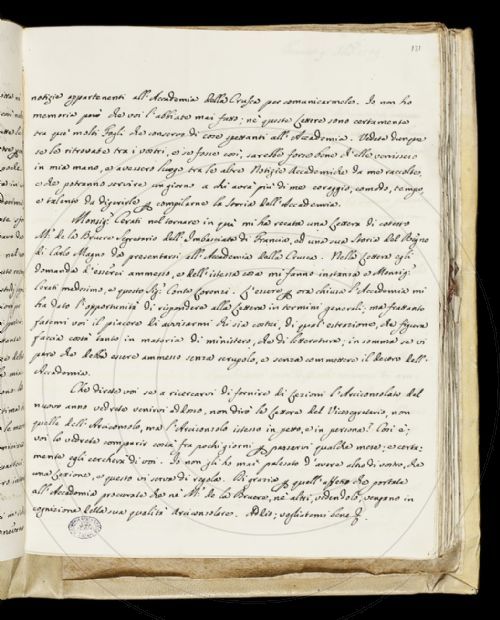 131
notizie appartenenti all'Accademia della Crusca per comunicarmele. Io non ho
memoria però che voi l'abbiate mai fatto; nè queste Lettere sono certamente
tra que' molti Fogli che conservo di cose spettanti all'Accademia. Vedete dunque
se le ritrovate tra i vostri, e se fosse così, sarebbe forse bene ch'elle venissero
in mia mano, e avessero luogo tra le altre Notizie Accademiche da me raccolte,
e che potranno servire un giorno a chi avrà più di me coraggio, comodo, tempo,
e talento da digerirle, e compilarne la Storia dell'Accademia.
Monsig. Cerati nel tornare in quà mi ha recata una Lettera di cotesto
M. de la Bruere Segretario dell'Imbasciata di Francia, ed una sua Storia del Regno
di Carlo Magno da presentarsi all'Accademia della Crusca. Nella Lettera egli
domanda d'esserci ammesso, e dell'istessa cosa mi fanno instanza e Monsig.
Cerati medesimo, e questo Sig. Conte Lorenzi. L'essere ora chiusa l'Accademia mi
ha dato l'opportunità di rispondere alla Lettera in termini generali; ma frattanto
fatemi voi il piacere di avvisarmi chi sia costui, di qual estrazione, che figura
faccia costà tanto in materia di ministero, che di letteratura; in somma se vi
pare che debba essere ammesso senza scrupolo, e senza commettere il decoro dell'
Accademia.
Che direte voi se a ricercarvi di fornire di Lezioni l'Arciconsolato del
nuovo anno vedrete venirvi addosso, non dirò la Lettera del Vicesegretario, non
quella dell'Arciconsolo, ma l'Arciconsolo istesso in petto, e in persona? Così è;
voi lo vedrete comparir costà fra pochi giorni per passarvi qualche mese; e certa-
mente egli cercherà di voi. Io non gli ho mai palesato d'avere altro di vostro, che
una Lezione, e questo vi serva di regola. Di grazia per quell'affetto che portate
all'Accademia procurate che nè M. de la Bruere, nè altri, vedendolo, vengano in
cognizione della sua qualità Arciconsolare. Addio; vogliatemi bene.